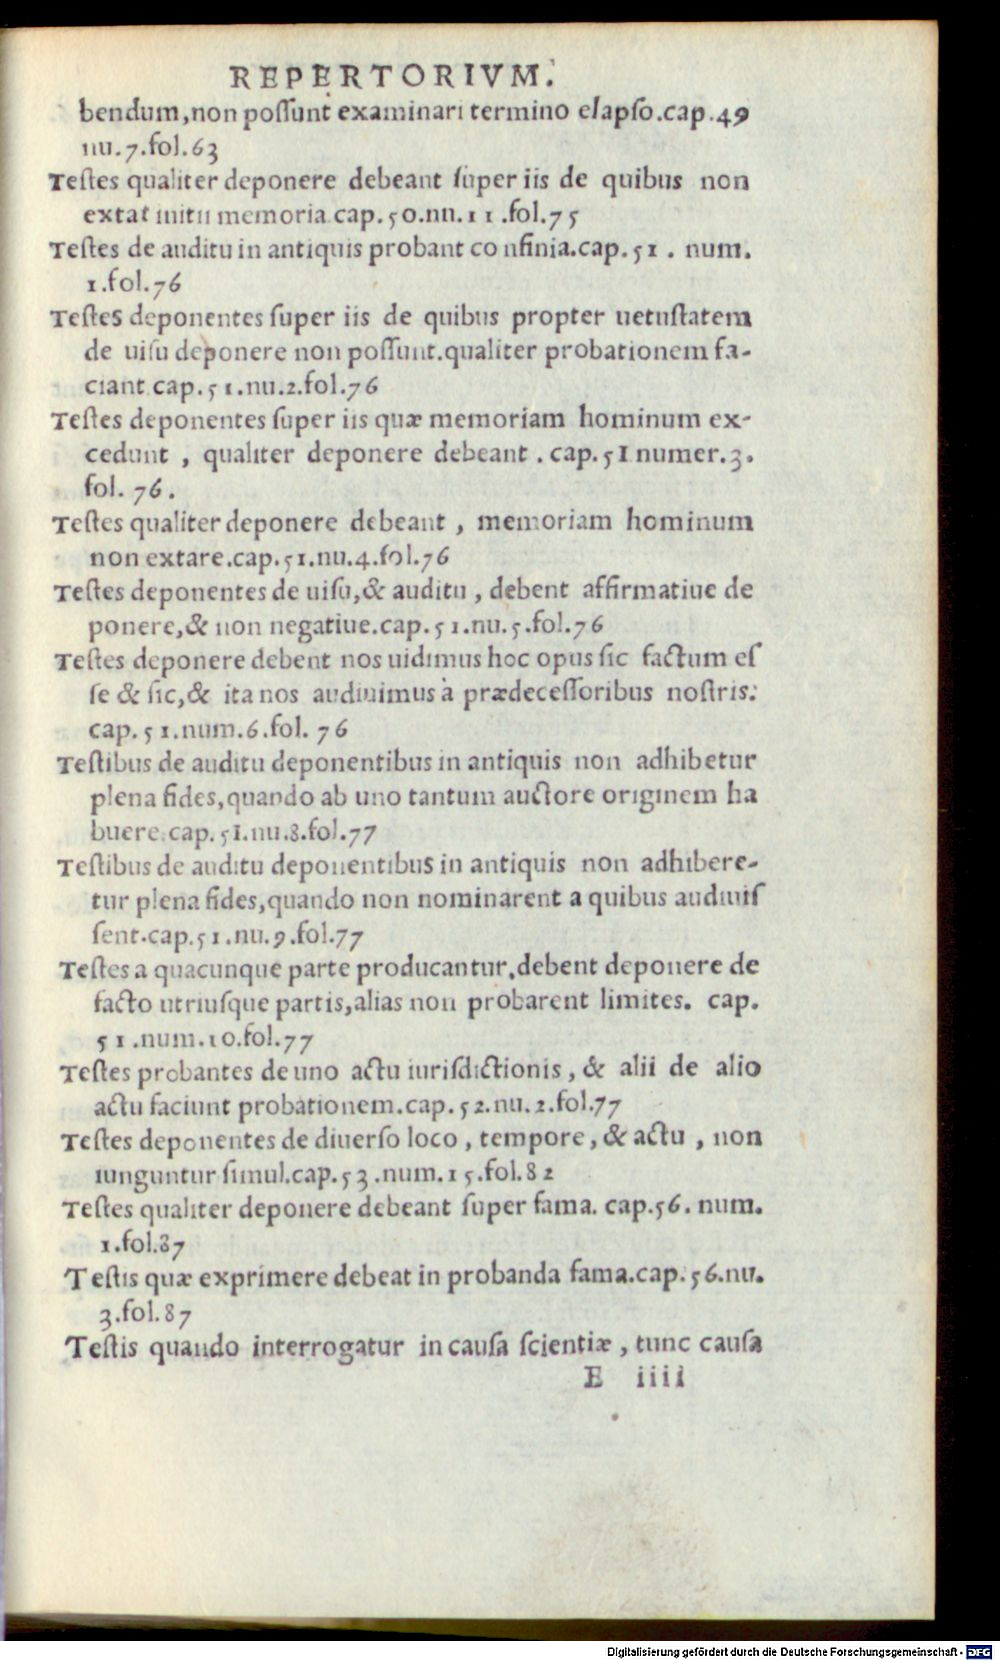 REPERTORIVM.
bendum, non poſſunt examinari termino elapſo.cap.49
nu.7.fol.63
Teſtes qualiter deponere debeant ſuper iis de quibus non
extat initii memoria cap.50.nu.11.fol.75
Teſtes de auditu in antiquis probant confinia.cap.51. num.
1.fol.76
Teſtes deponentes ſuper iis de quibus propter uetuſtatem
de uiſu deponere non poſſunt.qualiter probationem fa-
ciant cap.51.nu.2.fol.76
Teſtes deponentes ſuper iis quæ memoriam hominum ex-
cedunt , qualiter deponere debeant . cap.51 numer.3.
fol. 76.
Teſtes qualiter deponere debeant , memoriam hominum
non extare.cap.51.nu.4.fol.76
Teſtes deponentes de uiſu,& auditu , debent affirmatiue de
ponere,& non negatiue.cap.51.nu.5.fol.76
Teſtes deponere debent nos uidimus hoc opus ſic factum eſ
ſe & ſic,& ita nos audiuimus à prædeceſſoribus noſtris.
cap.51.num.6.fol. 76
Teſtibus de auditu deponentibus in antiquis non adhibetur
plena fides,quando ab uno tantum auctore originem ha
buere.cap.51.nu.8.fol.77
Teſtibus de auditu deponentibus in antiquis non adhibere-
tur plena fides,quando non nominarent a quibus audiuiſ
ſent.cap.51.nu.9.fol.77
Teſtes a quacunque parte producantur,debent deponere de
facto utriuſque partis,alias non probarent limites. cap.
51.num.10.fol.77
Teſtes probantes de uno actu iuriſdictionis , & alii de alio
actu faciunt probationem.cap.52.nu.2.fol.77
Teſtes deponentes de diuerſo loco , tempore , & actu , non
iunguntur ſimul.cap.53.num.15.fol.82
Teſtes qualiter deponere debeant ſuper fama. cap.56. num.
1.fol.87
Teſtis quæ exprimere debeat in probanda fama.cap.56.nu.
3.fol.87
Teſtis quando interrogatur in cauſa ſcientiæ , tunc cauſa
E iiii
Digitalisierung gefördert durch die Deutsche Forschungsgemeinschaft - DFG